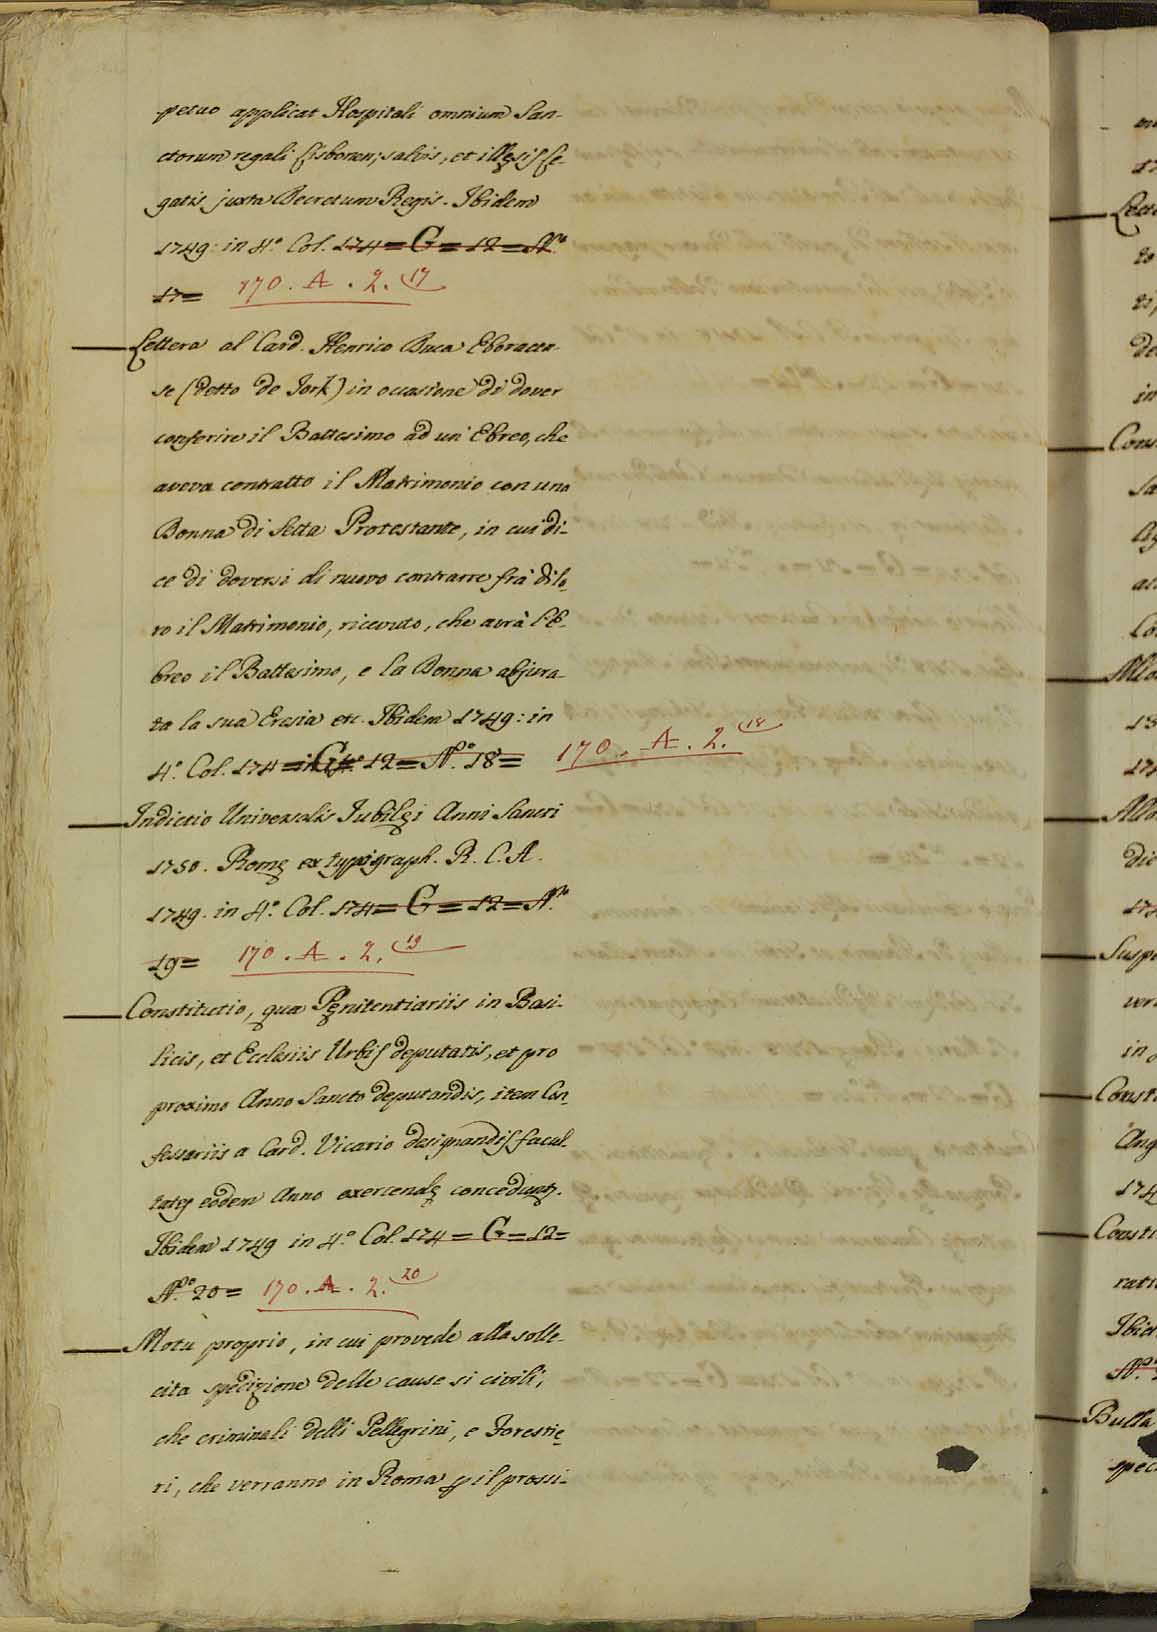 petuo applicat Hospitali omnium San-
ctorum regali Lisbonen; salvis, et illęsis Le-
gatis juxta Decretum Regis. Ibidem
1749: in 4.º Col. 174 = G = 12 = N.º
17 = 170. A. 2. 17
Lettera al Card. Henrico Duca Eboracen-
se (detto de Jork) in occasione di dover
conferire il Battesimo ad un' Ebreo, che
aveva contratto il Matrimonio con una
Donna di Setta Protestante, in cui di-
ce di doversi di nuovo contrarre frà di lo-
ro il Matrimonio, ricevuto, che avrà l'E-
breo il Battesimo, e la Donna abjura-
ta la sua Eresia etc. Ibidem 1749: in
4.º Col. 174 = G = 12 = N.º 18 = 170. A. 2. 18
Indictio Universalis Jubilęi Anni Sancti
1750. Romę ex typigraph. R. C. A.
1749. in 4.º Col. 174 = G = 12 = N.º
19 = 170. A. 2. 19
Constitutio, qua Pęnitentiariis in Basi-
licis, et Ecclesiis Urbis deputatis, et pro
proximo Anno Sancto deputandis, item Con-
fessariis a Card. Vicario designandis facul-
tates eodem Anno exercendę conceduntr.
Ibidem 1749 in 4.º Col. 174 = G = 12 =
N.º 20 = 170. A. 2. 20
Motu proprio, in cui provede alla solle-
cita spedizione delle cause si civili,
che criminali delli Pellegrini, e Forestie-
ri, che verranno in Roma p il prossi-